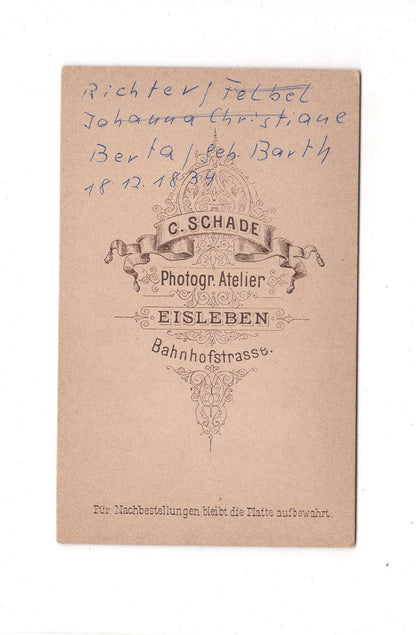 Richter / Felbel
Johanna Christiane
Berta / geb Barth
18.12.1834
C. SCHADE
Photogr. Atelier
EISLEBEN
Bahnhofstrasse.
Für Nachbestellungen bleibt die Platte aufbewahrt.